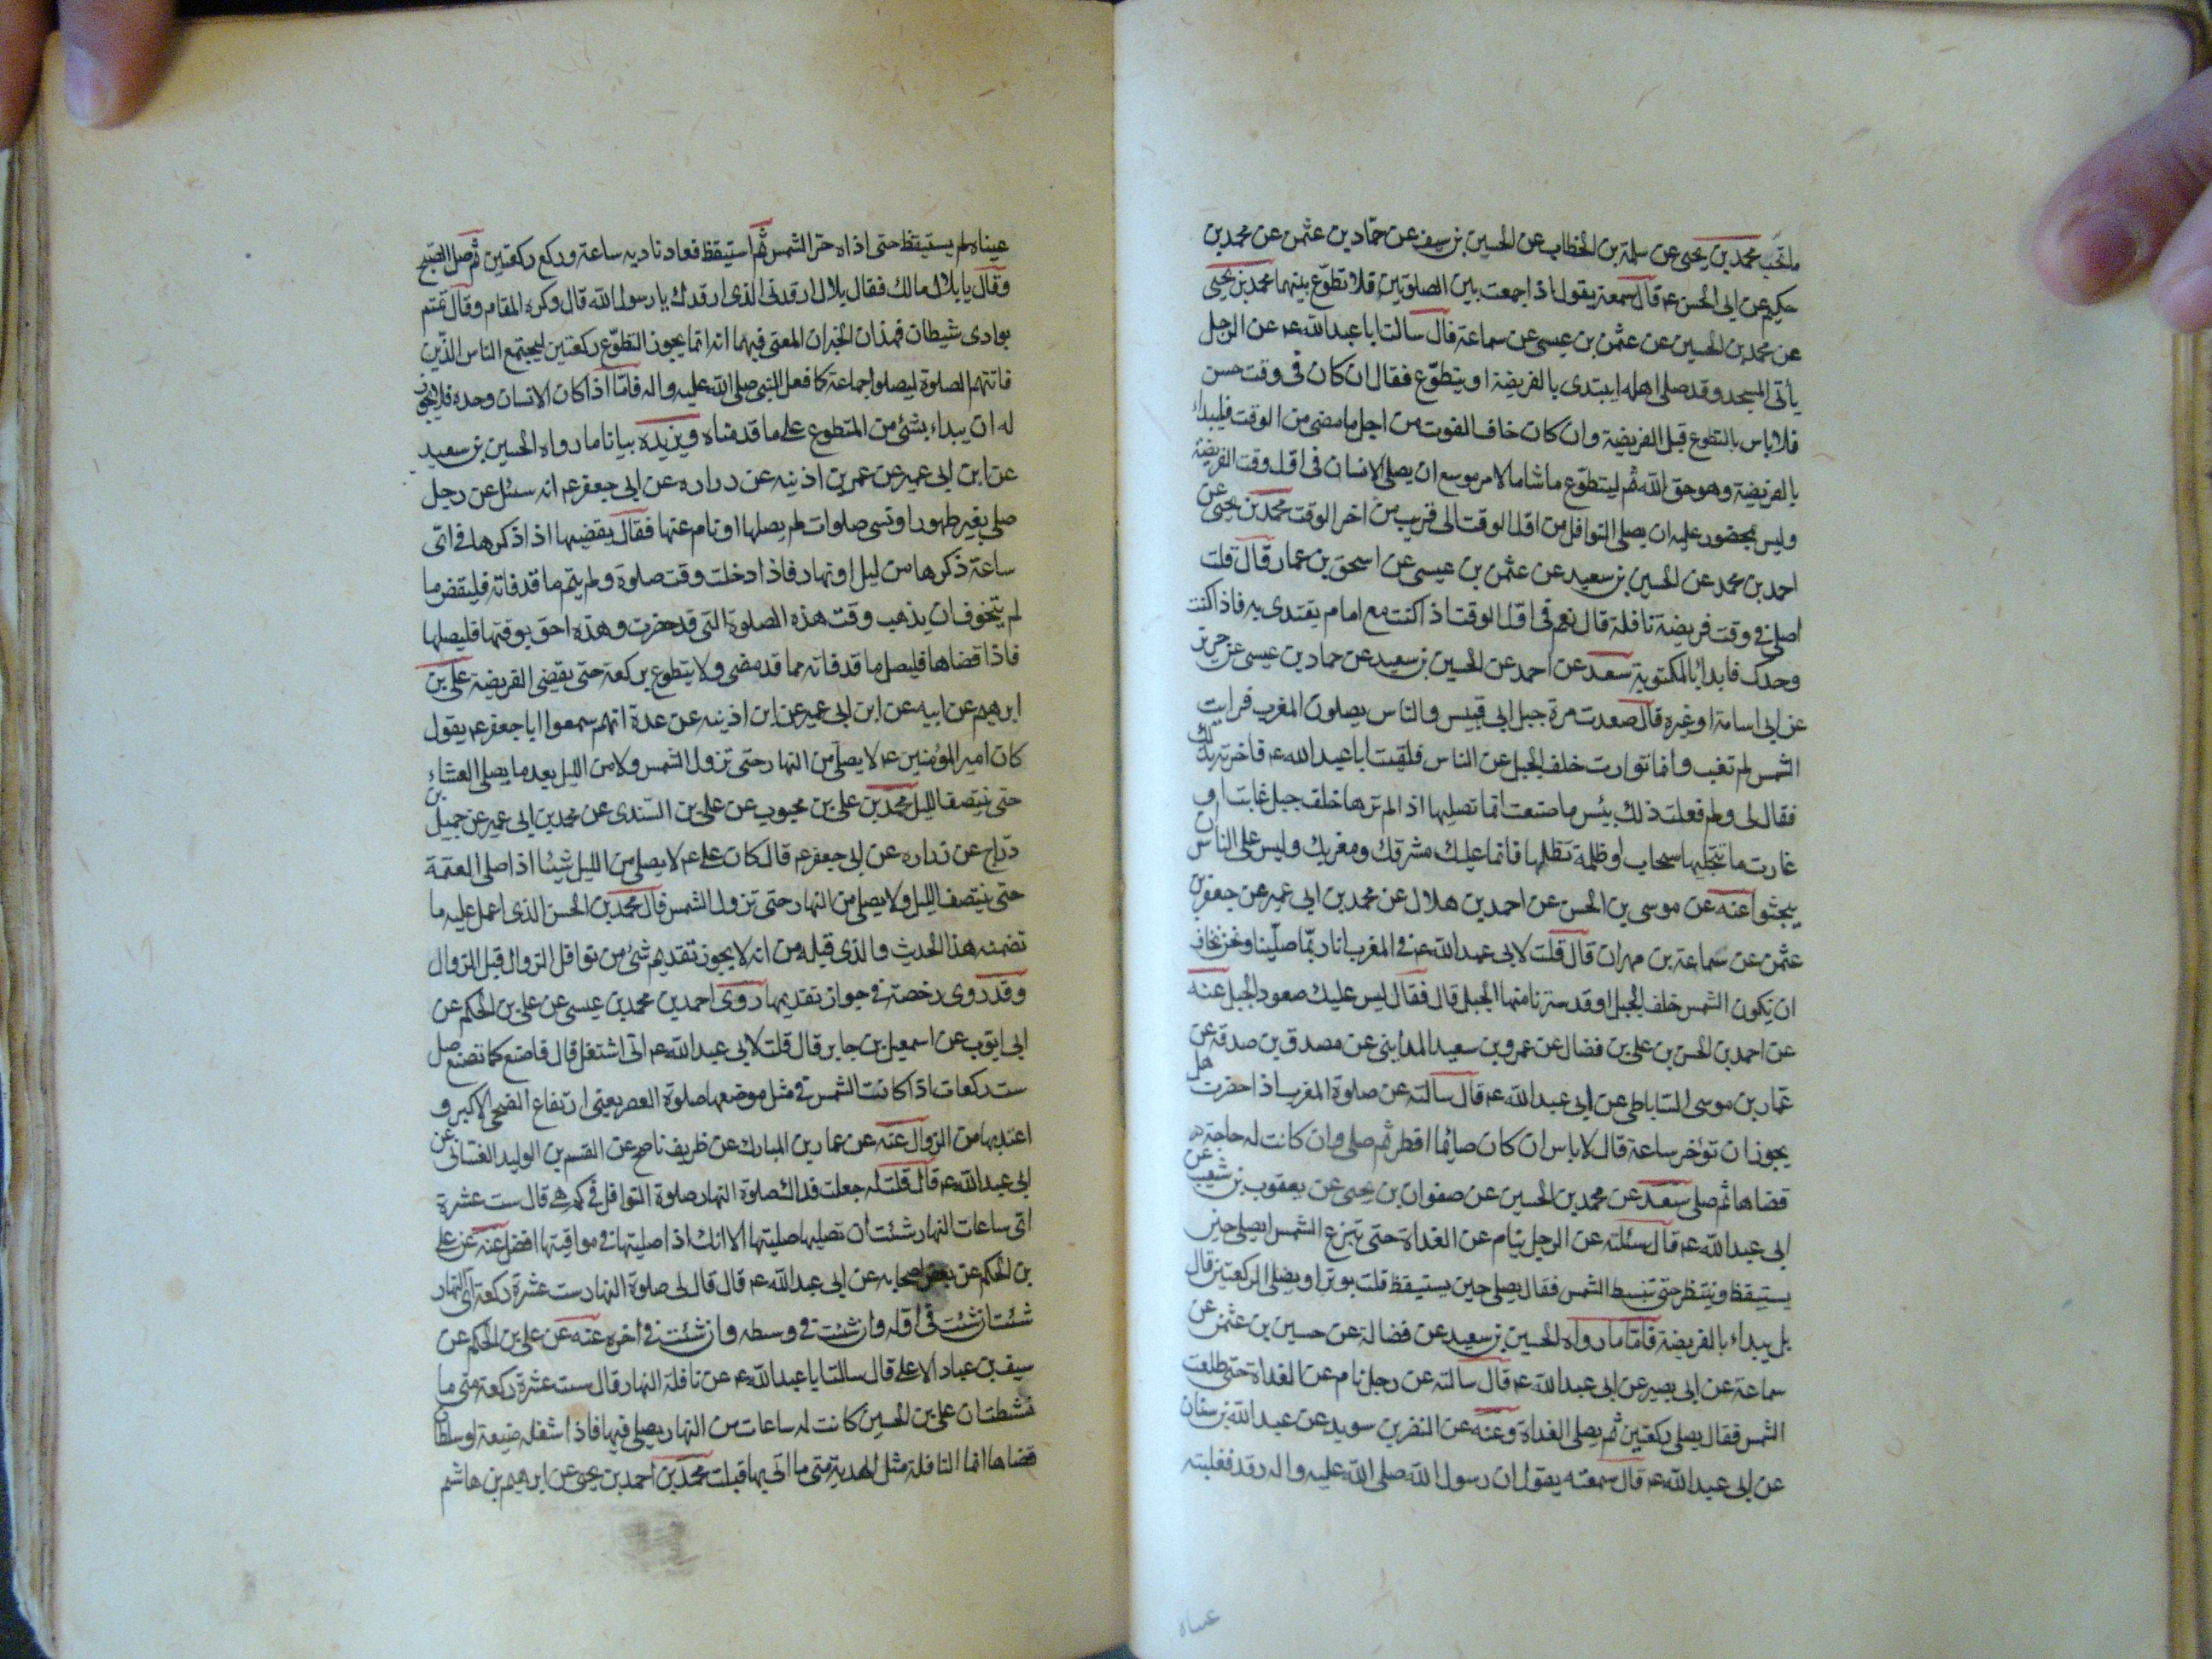 ما تحب محمد بن يحيى عن سلمة بن الخطاب عن الحسين بن سيف عن حماد بن عثمن عن محمد بن
حكيم عن ابى الحسن ع قال سمعته يقول اذا جمعت بين الصلوتين فلا تطوع بينهما محمد بن يحيى
عن محمد بن الحسين عن عثمن بن عيسى عن سماعة قال سالت ابا عبد الله ع عن الرجل
ياتى المسجد وقد صلى اهله ايبتدى بالفريضة او يتطوع فقال ان كان فى وقت حسن
فلا باس بالتطوع قبل الفريضة وان كان خاف الفوت من اجل ما مضى من الوقت فليبداء
بالفريضة وهو حق الله ثم ليتطوع ما شاما الامر موسع ان يصلى الانسان فى اول وقت الفريضة
وليس بمحضور عليه ان يصلى النوافل من اول الوقت الى قريب من اخر الوقت محمد بن يحيى عن
احمد بن محمد عن الحسين بن سعيد عن عثمن بن عيسى عن اسحق بن عمار قال قلت
اصلى فى وقت فريضة نافلة قال نعم فى اول الوقت اذا كنت مع امام يقتدى به فاذا كنت
وحدك فابدا بالمكتوبة سعد عن احمد عن الحسين بن سعيد عن حماد بن عيسى عن حريز
عن ابى اسامة او غيره قال صعدت مرة جبل ابى قبيس والناس يصلون المغرب فرايت
الشمس لم تغب وانما توارت خلف الجبل عن الناس فلقيت ابا عبد الله ع فاخبرته بذلك
فقال لى ولم فعلت ذلك بئس ما صنعت انما تصليها اذا لم ترها خلف جبل غابت او
غارت ما تتجليها سحاب او ظلمة تظلها فانما عليك مشرقك ومغربك وليس على الناس ان
يبحثوا عنه عن موسى بن الحسن عن احمد بن هلال عن محمد بن ابى عمير عن جعفر بن
عثمن عن سماعة بن مهران قال قلت لابى عبد الله ع فى المغرب انا ربما صلينا ونحن نخاف
ان تكون الشمس خلف الجبل او قد سترنا منها الجبل قال فقال ليس عليك صعود الجبل عنه
عن احمد بن الحسن بن على بن فضال عن عمرو بن سعيد المداينى عن مصدق بن صدقة عن
عمار بن موسى الساباطى عن ابى عبد الله ع قال سالته عن صلوة المغرب اذا حضرت هل
يجوز ان تؤخر ساعة قال لا باس ان كان صائما افطر ثم صلى وان كانت له حاجة
قضاها ثم صلى سعد عن محمد بن الحسين عن صفوان بن يحيى عن يعقوب بن شعيب عن
ابى عبد الله ع قال سئلته عن الرجل ينام عن الغداة حتى تبزغ الشمس ايصلى حين
يستيقظ او ينتظر حتى تنبسط الشمس فقال يصلى حين يستيقظ قلت يوتر او يصلى الركعتين قال
بل يبداء بالفريضة فاما ما رواه الحسين بن سعيد عن فضالة عن حسين بن عثمن عن
سماعة عن ابى بصير عن ابى عبد الله ع قال سالته عن رجل نام عن الغداة حتى طلعت
الشمس فقال يصلى ركعتين ثم يصلى الغداة وعنه عن النضر بن سويد عن عبد الله بن سنان
عن ابى عبد الله ع قال سمعته يقول ان رسول الله صلى الله عليه واله رقد فغلبته
عيناه
عيناه لم يستيقظ حتى اذاه حر الشمس ثم استيقظ فعاد ناديه ساعة وركع ركعتين ثم صلى الصبح
وقال يا بلال مالك فقال بلال ارقدنى الذى ارقدك يا رسول الله قال وكره المقام وقال نمتم
بوادى شيطان فهذان الخبران المعنى فيهما انه انما يجوز التطوع ركعتين ليجتمع الناس الذين
فاتتهم الصلوة ليصلوا جماعة كما فعل النبى صلى الله عليه واله فاما اذا كان الانسان وحده فلا يجوز
له ان يبداء بشئ من المتطوع على ما قدمناه ويزيده بيانا ما رواه الحسين بن سعيد
عن ابن ابى عمير عن عمر بن اذينه عن زراره عن ابى جعفر ع انه سئل عن رجل
صلى بغير طهور او نسى صلوات لم يصلها او نام عنها فقال يقضيها اذا ذكرها فى اى
ساعة ذكرها من ليل او نهار فاذا دخلت وقت صلوة ولم يتم ما قد فاته فليقض ما
لم يتخوف ان يذهب وقت هذه الصلوة التى قد حضرت وهذه احق بوقتها فليصلها
فاذا قضاها فليصل ما قد فاته مما قد مضى ولا يتطوع بركعة حتى يقضى الفريضة على بن
ابرهيم عن ابيه عن ابن ابى عمير عن ابن اذينه عن عدة انهم سمعوا ابا جعفر ع يقول
كان امير المؤمنين ع لا يصلى من النهار حتى تزول الشمس ولا من الليل بعد ما يصلى العشاء
حتى ينتصف الليل محمد بن على بن محبوب عن على بن السندى عن محمد بن ابى عمير عن جميل بن
دراج عن زراره عن ابى جعفر ع قال كان على ع لا يصلى من الليل شيئا اذا صلى العتمة
حتى ينتصف الليل ولا يصلى من النهار حتى تزول الشمس قال محمد بن الحسن الذى اعمل عليه ما
تضمنه هذا الحديث والذى قبله من انه لا يجوز تقديم شئ من نوافل الزوال قبل الزوال
وقد روى رخصة فى جواز تقديمها روى احمد بن محمد بن عيسى عن على بن الحكم عن
ابى ايوب عن اسمعيل بن جابر قال قلت لابى عبد الله ع انى اشتغل قال فاصنع كما نصنع صل
ست ركعات اذا كانت الشمس فى مثل موضعها صلوة العصر يعنى ارتفاع الضحى الاكبر و
اعتد بها من الزوال عنه عن عمار بن المبارك عن ظريف ناصح عن القسم بن الوليد الغسانى عن
ابى عبد الله ع قال قلت له جعلت فداك صلوة النهار صلوة النوافل فى كم هى قال ست عشرة
اى ساعات النهار شئت ان تصليها صليتها الا انك اذا صليتها فى مواقيتها افضل عنه عن على
بن الحكم عن بعض اصحابه عن ابى عبد الله ع قال قال لى صلوة النهار ست عشرة ركعة اى النهار
شئت ان شئت فى اوله وان شئت فى وسطه وان شئت فى اخره عنه عن على بن الحكم عن
سيف بن عباد الاعلى قال سالت ابا عبد الله ع عن نافلة النهار قال ست عشرة ركعة متى ما
نشطت ان على بن الحسين كانت له ساعات من النهار يصلى فيها فاذا شغله ضيعة او سلطان
قضاها انما النافلة مثل الهدية متى ما اتى بها قبلت محمد بن احمد بن يحيى عن ابرهيم بن هاشم